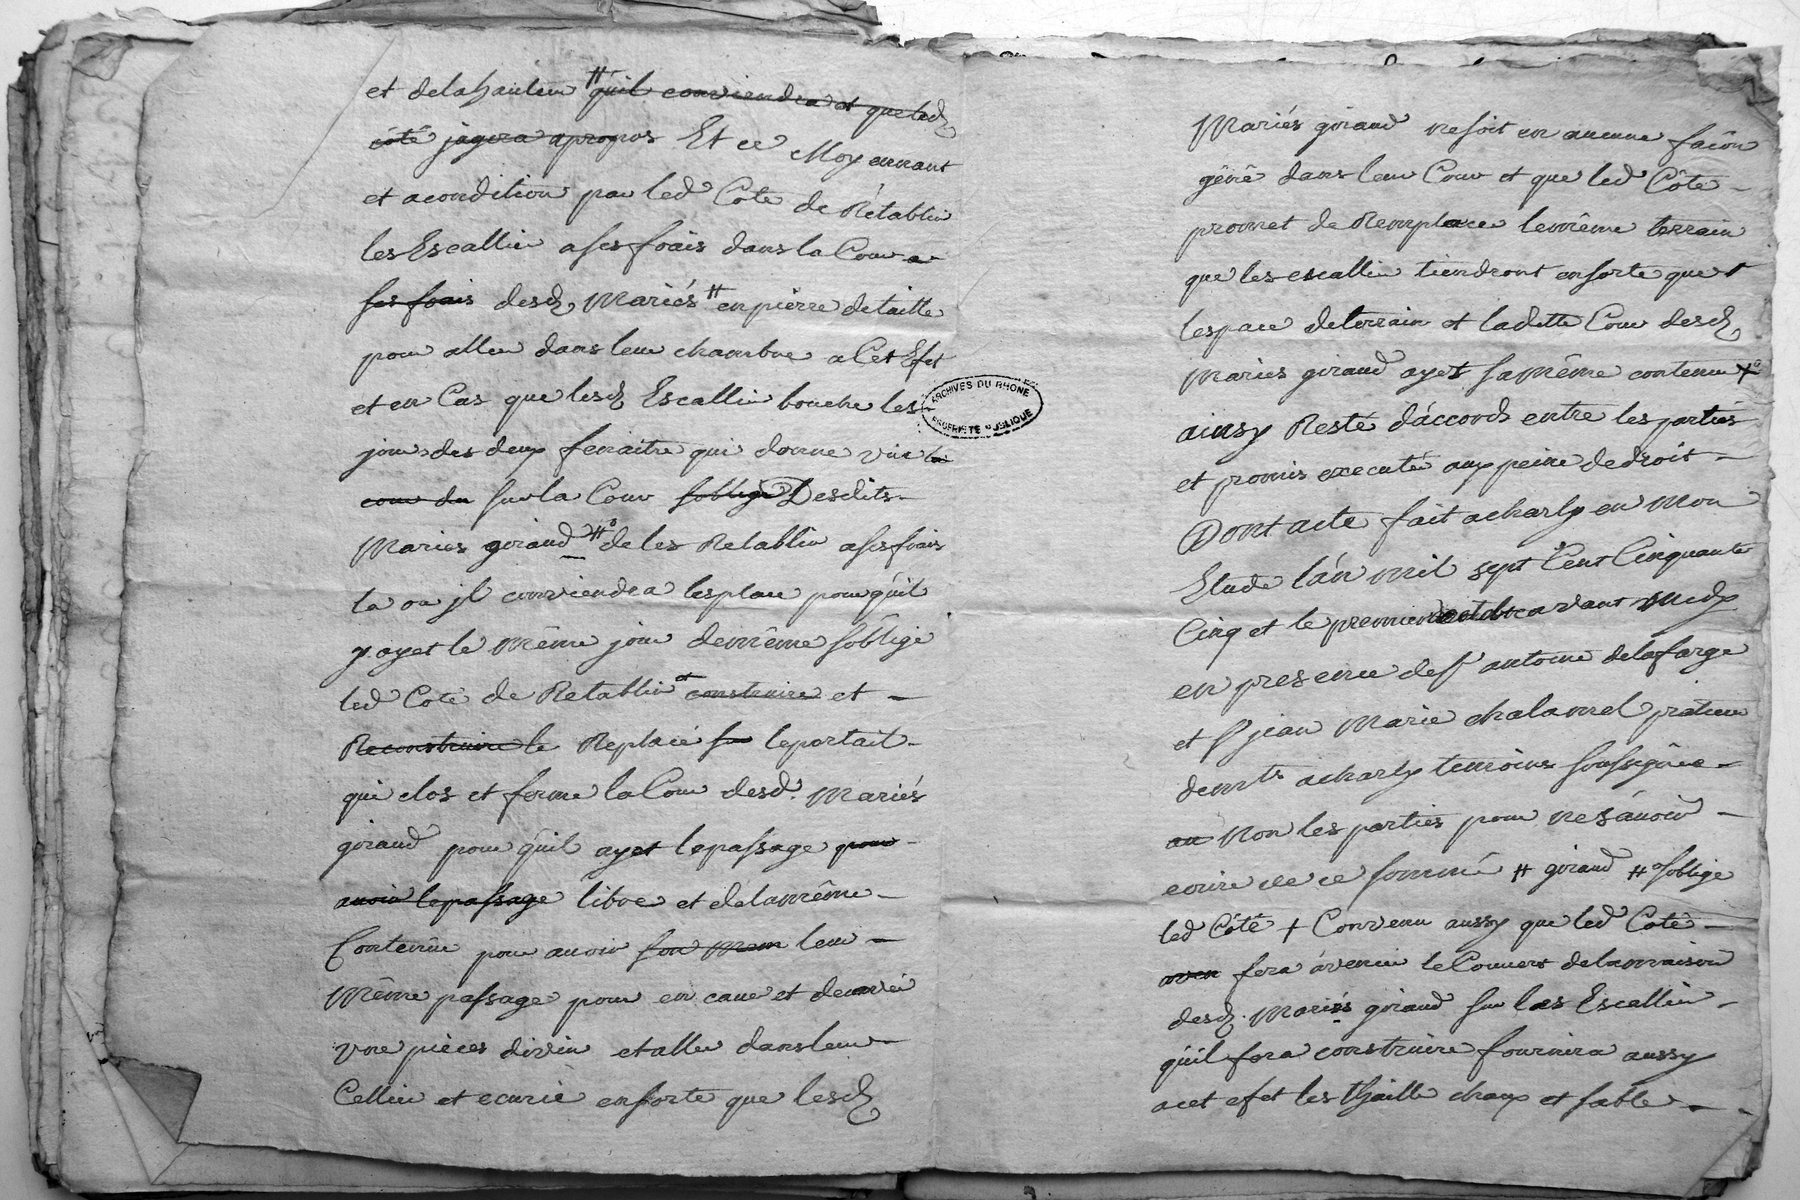 et delahauteur # quil conviendra et queledt
côté jugera apropos Et ce Moyennant
et acondition par led Cote de Rétablir
les Escallier asesfrais dans la Cour a
ses frais desd Mariés # enpierre detaille
pour aller dans leur chambre a Cet Efet
et en Cas que lesd Escallier bouche les
jour des deux fenaitre qui donne vüe la
cour du sur la Cour soblige Desdits
Mariés giraud # de les Retablir asesfrais
la ou jl conviendra lesplace pourquil
y ayet le même jour demême soblige
led Coté de Retablir et construire et
Reconstruire le Replacé sur leportail
qui clos et ferme la Cour desd. Mariés
giraud pour quil ayet lepassage pour
avoir lepassage libre et delamême
Contenüe pour avoir son mem leur
Même passage pour en cave et
vne pièces divin etaller dansleur
Cellier et ecurié ensorte que lesd
ARCHIVES DU RHONE
PROPRIETE PUBLIQUE
Mariés giraud nesoit en aucune facôn
gêné dans leur Cour et que led Côté
promet de Remplacer lemême terrain
que les escallier tiendront ensorte que
lespace deterrain et ladette Cour desd
Mariés giraud ayet samême contenu +
ainsy Resté d'accords entre les partiés
et promis executér aux peine dedroit
Dont acte fait acharly en Mon
Etude lán mil sept Cent Cinquante
Cinq et le premier octobre avant Midy
en presence de sr antoine delafarge
et sr jean Marie chalamel praticien
demts acharly temoins soussignée
au Non les parties pour ne sávoir
ecrire de ce sommé # giraud # soblige
led Côté + Convenu aussy que led Coté
aven fera ávenir le Couvert delamaison
desd. Mariés giraud sur las Escallier
quil fera construire fournira aussy
acet efet les thuille chaux et sable